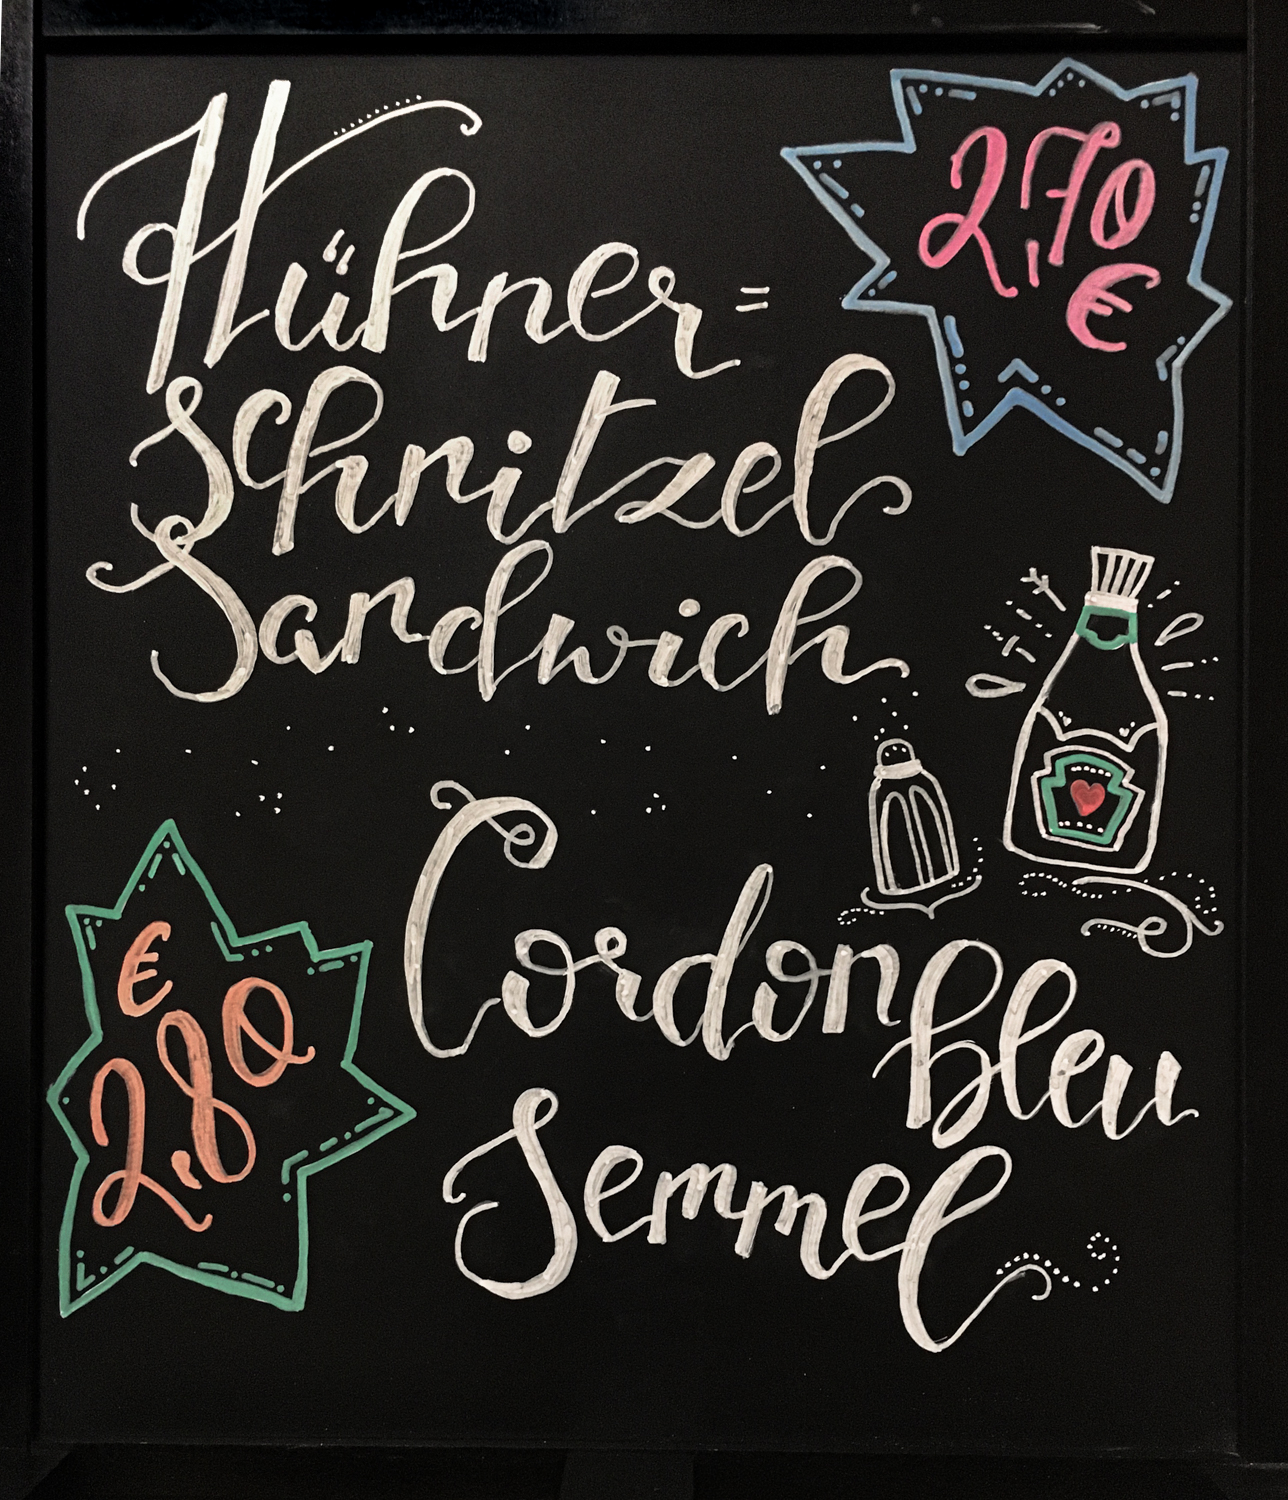 Hühner=
schnitzel
Sandwich
2,70
€
Cordon
bleu
Semmel
€
2,80